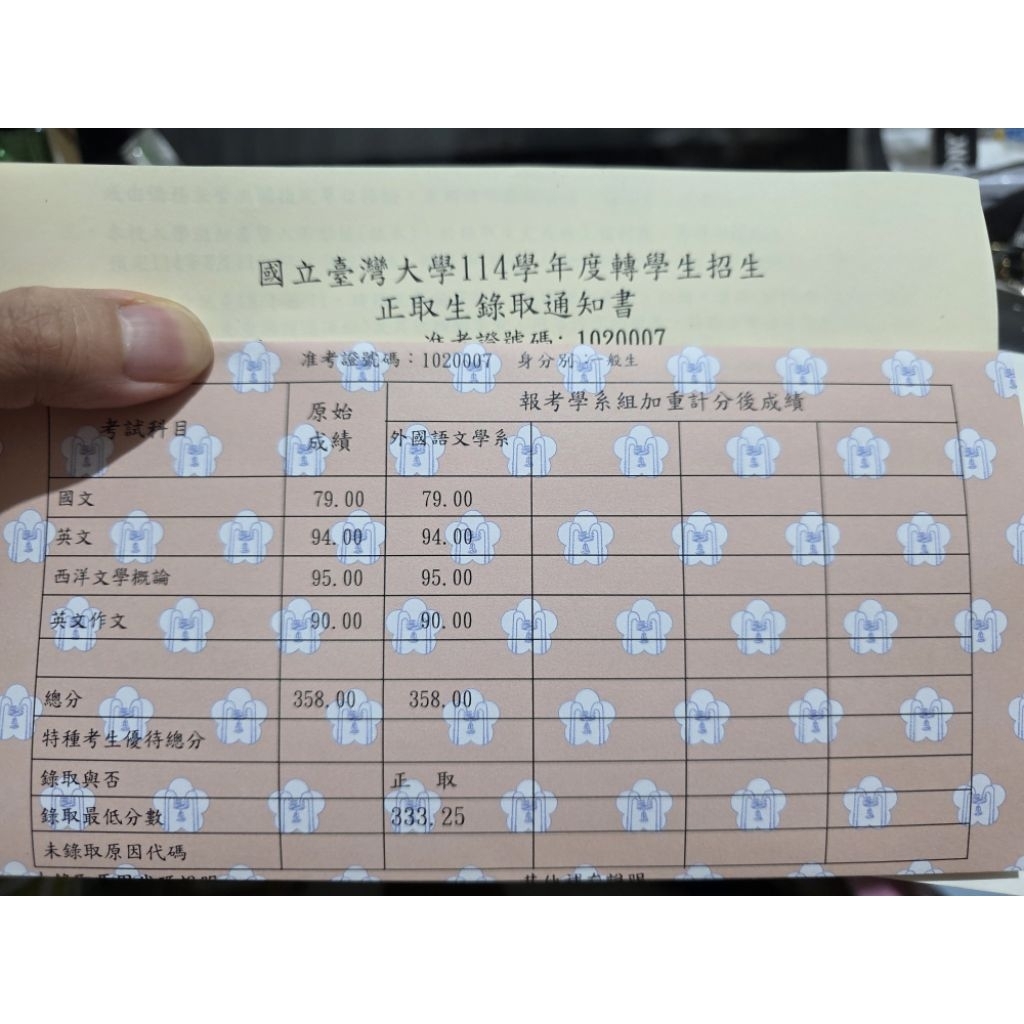 國立臺灣大學114學年度轉學生招生
正取生錄取通知書
准考證號碼：1020007
准考證號碼：1020007 身分別：一般生
考試科目 原始成績 報考學系組加重計分後成績
外國語文學系
國文 79.00 79.00
英文 94.00 94.00
西洋文學概論 95.00 95.00
英文作文 90.00 90.00
總分 358.00 358.00
特種考生優待總分
錄取與否 正 取
錄取最低分數 333.25
未錄取原因代碼